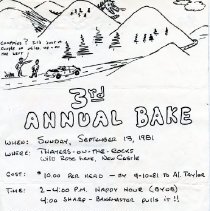 3rd
ANNUAL BAKE
WHEN: SUNDAY, SEPTEMBER 13, 1981
WHERE: THAYERS-ON-THE-ROCKS
WILD ROSE LANE, NEW CASTLE
COST: $10.00 PER HEAD - BY 9-10-81 TO AL TAYLOR
TIME: 2-4:00 P.M. HAPPY HOUR (BYOB)
4:00 SHARP - BAKEMASTER PULLS IT!!